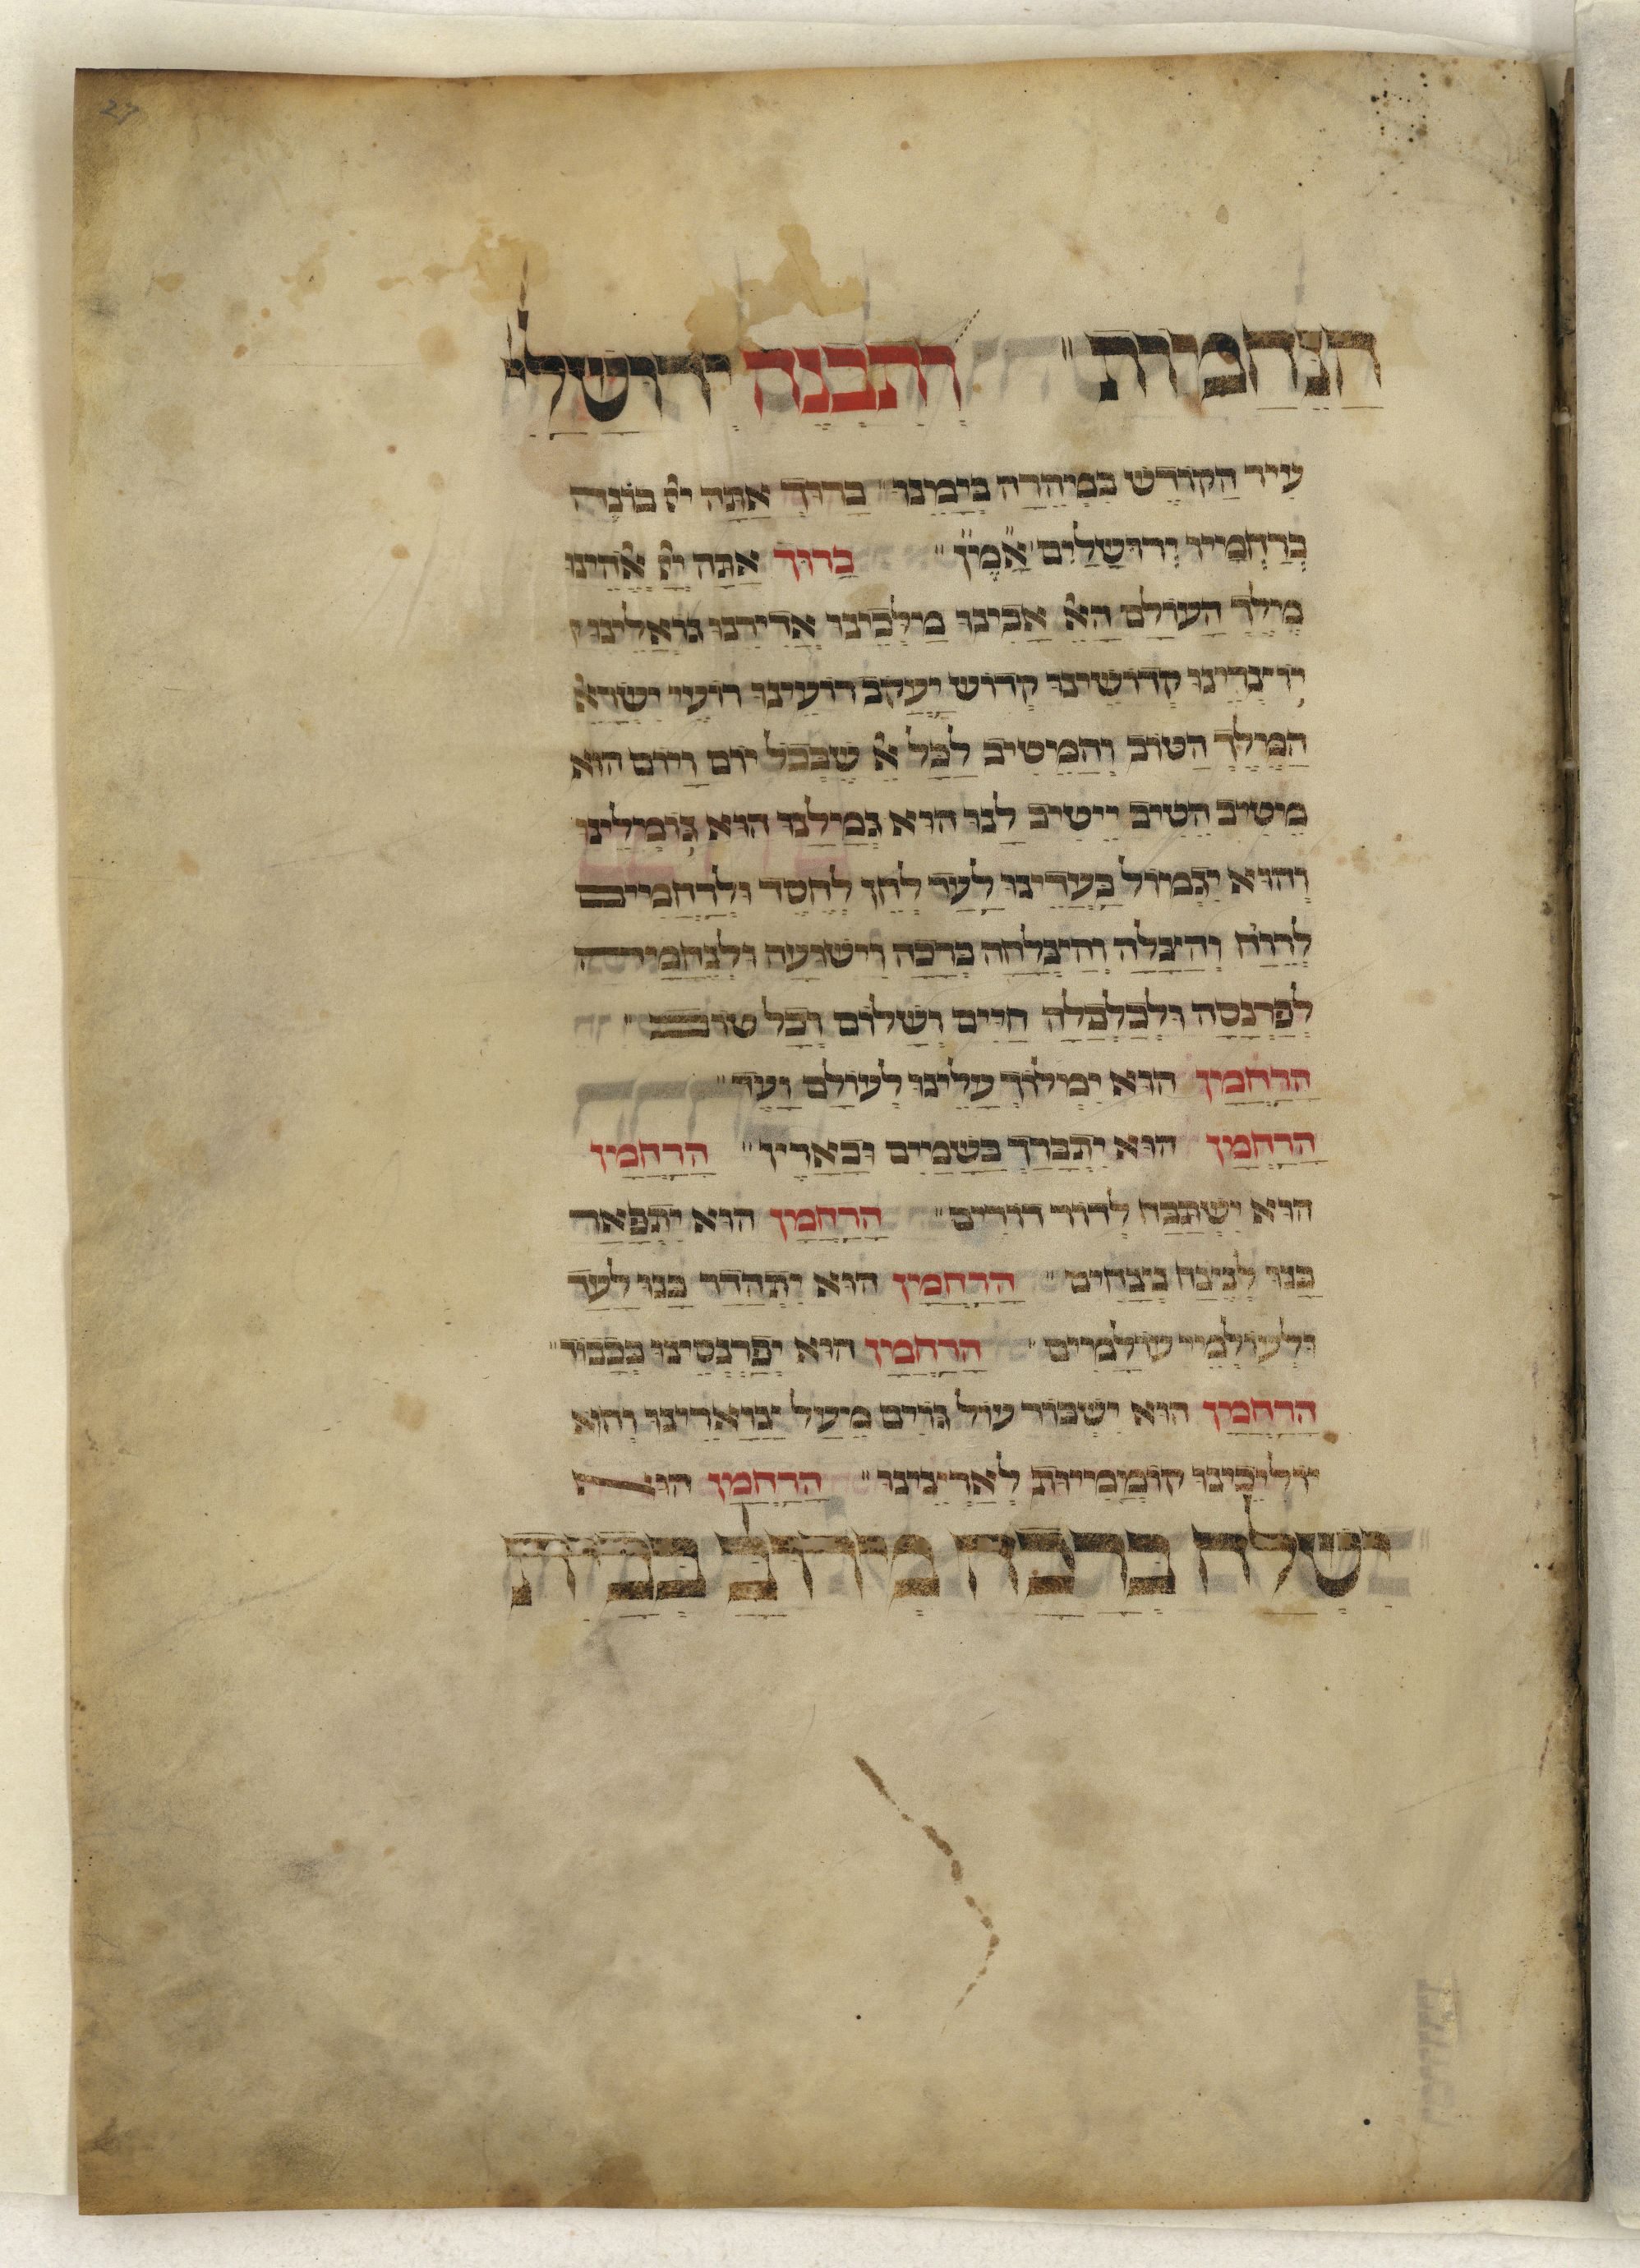 הנחמות" ותבנה ירושלי
עיר הקודש במהרה בימינו" ברוך אתה יי בונה
ברחמיו ירושלים" אמן" ברוך אתה יי אלהינו
מלך העולם האל אבינו מלכינו אדירנו גואלינו
יוצרינו קדושינו קדוש יעקב רועינו רועי ישראל
המלך הטוב והמטיב לכל אל שבכל יום ויום הוא
מטיב הטיב ייטיב לנו הוא גמלנו הוא גומלינו
והוא יגמול בעדינו לעד לחן לחסד ולרחמים
לרוח והצלה והצלחה ברכה וישועה ולנחמה
לפרנסה ולכלכלה חיים ושלום וכל טוב"
הרחמן הוא ימלוך עלינו לעולם ועד"
הרחמן הוא יתברך בשמים ובארץ" הרחמן
הוא ישתבח לדור דורים" הרחמן הוא יתפאר
בנו לנצח נצחים" הרחמן הוא יתהדר בנו לעד
ולעולמי עולמים" הרחמן הוא יפרנסינו בכבוד"
הרחמן הוא ישבור עול גוים מעל צוארינו והוא
יוליכינו קוממיות לארצינו" הרחמן הוא
ישלח ברכה מרובה בבית